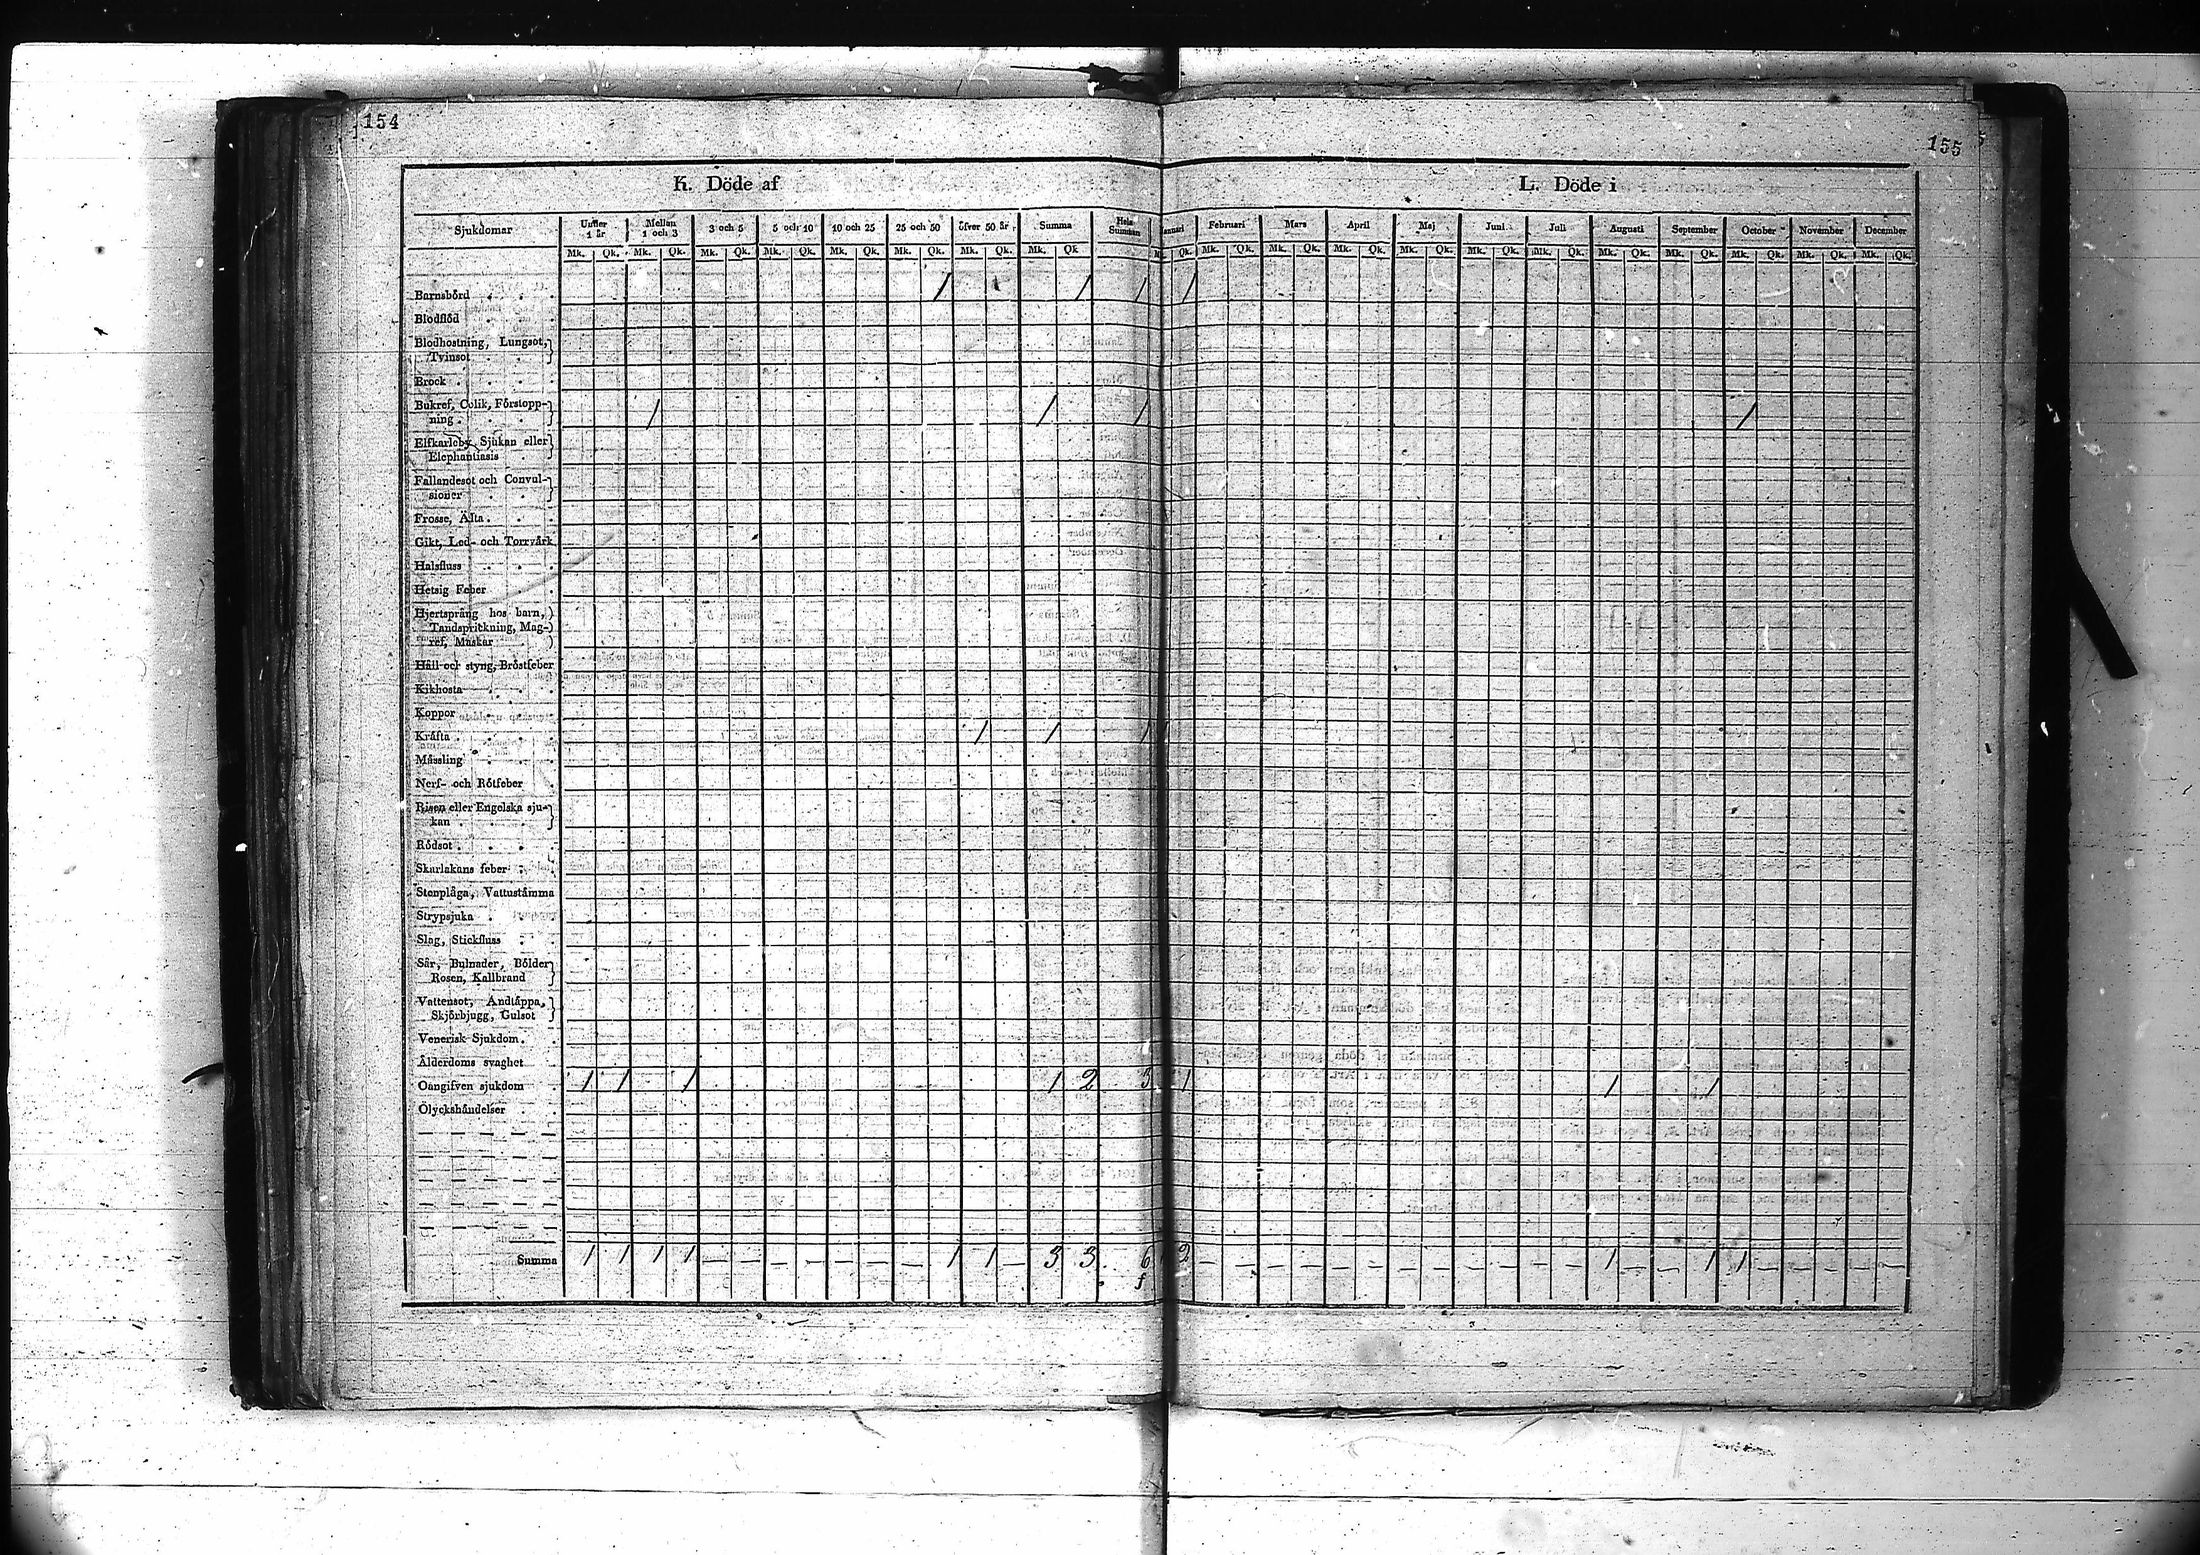 154
155
K. Döde af
L. Döde i
Sjukdomar Under 1 år Mellan 1 och 3 3 och 5 5 och 10 10 och 25 25 och 50 öfver 50 år Summa Hela Summan Februari Mars April Maj Juni Juli Augusti September October November December
Mk. Qk. Mk. Qk. Mk. Qk. Mk. Qk. Mk. Qk. Mk. Qk. Mk. Qk. Mk. Qk. Qk. Mk. Qk. Mk. Qk. Mk. Qk. Mk. Qk. Mk. Qk. Mk. Qk. Mk. Qk. Mk. Qk. Mk. Qk. Mk. Qk. Mk. Qk.
Barnsbörd 1 1 1 1
Blodflöd
Blodhostning, Lungsot,
Tvinsot
Brock
Bukref, Colik, Förstopp-
ning 1 1 1 1
Elfkarleby Sjukan eller
Elephantiasis
Fallandesot och Convul-
sioner
Frosse, Älta
Gikt, Led- och Torrvärk
Halsfluss
Hetsig Feber
Hjertsprång hos barn,
Tandsprickning, Mag-
ref, Maskar
Håll och styng, Bröstfeber
Kikhosta
Koppor
Kräfta 1 1 1 1
Mässling
Nerf- och Rötfeber
Risen eller Engelska sju-
kan
Rödsot
Skarlakans feber
Stenplåga, Vattustämma
Strypsjuka
Slag, Stickfluss
Sår, Bulnader, Bölder
Rosen, Kallbrand
Vattensot, Andtäppa,
Skjörbjugg, Gulsot
Venerisk Sjukdom
Ålderdoms svaghet
Oangifven sjukdom 1 1 1 1 2 3 1 1 1
Olyckshändelser
Summa 1 1 1 1 — — — — — — — 1 1 — 3 3 6 2 — — — — — — — — — — — — 1 — — 1 1 — — — — —